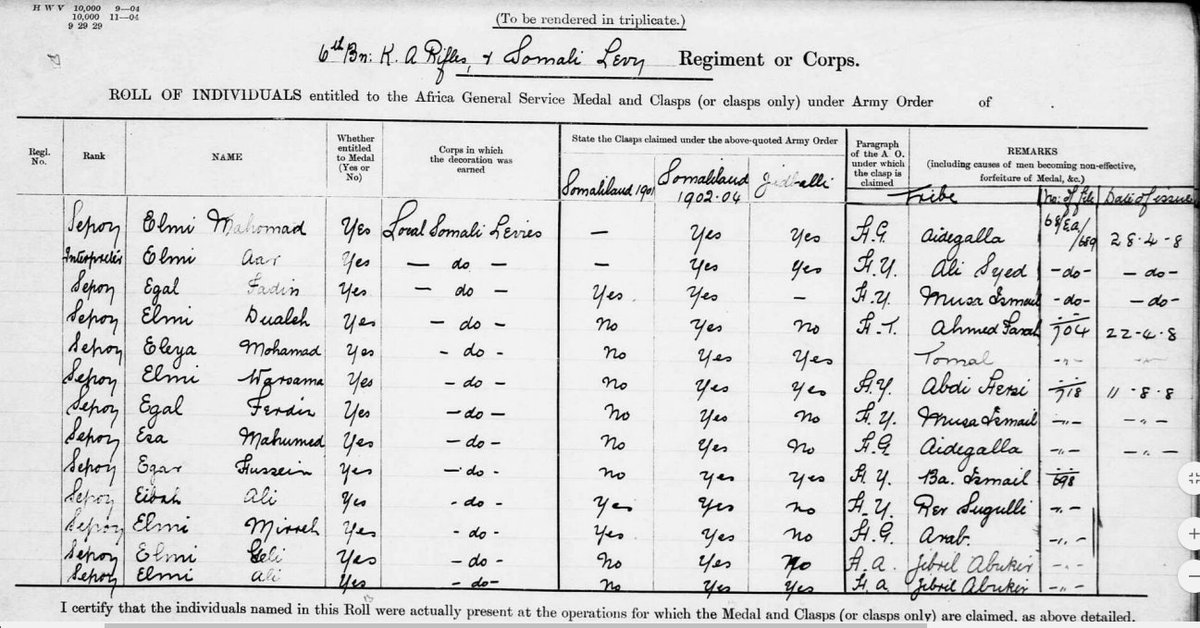 H W V 10,000 9—04
10,000 11—04
9 29 29
(To be rendered in triplicate.)
6th Bn: K. A Rifles, & Somali Levy Regiment or Corps.
ROLL OF INDIVIDUALS entitled to the Africa General Service Medal and Clasps (or clasps only) under Army Order of
Regl. No. Rank NAME Whether entitled to Medal (Yes or No) Corps in which the decoration was earned State the Clasps claimed under the above-quoted Army Order Paragraph of the A. O. under which the clasp is claimed REMARKS (including causes of men becoming non-effective, forfeiture of Medal, &c.)
Somaliland 1901 Somaliland 1902-04 Jidballi Tribe No: of file Date of issue
Sepoy Elmi Mahomad Yes Local Somali Levies — Yes Yes H.G. Aidegalla 68/Ea/689 28.4.8
Interpreter Elmi Aar Yes — do — — Yes Yes H.Y. Ali Syed -do- — do —
Sepoy Egal Fadin Yes — do — Yes Yes — H.Y. Musa Ismail -do- — do —
Sepoy Elmi Dualeh Yes — do — No Yes No H.T. Ahmed Farah 704 22-4.8
Sepoy Eleya Mohamad Yes - do - No Yes Yes Tomal -"- -"-
Sepoy Elmi Warsama Yes - do - No Yes Yes H.Y. Abdi Hersi 718 11-8.8
Sepoy Egal Ferdin Yes — do — No Yes No H.Y. Musa Ismail -"- — " —
Sepoy Esa Mahumed Yes — do - No Yes No H.G Aidegalla -"- — " —
Sepoy Egar Hussein Yes — do - No Yes Yes H.Y. Ba. Ismail 698
Sepoy Eibah Ali Yes - do - Yes Yes No H.Y. Rer Sugulli -"-
Sepoy Elmi Mirreh Yes - do - Yes Yes No H.G. Arab. -"-
Sepoy Elmi Geli Yes - do - No Yes No H.A. Jibril Abukir -"-
Sepoy Elmi Ali Yes - do- No Yes Yes H.A. Jibril Abukir -"-
I certify that the individuals named in this Roll were actually present at the operations for which the Medal and Clasps (or clasps only) are claimed, as above detailed.